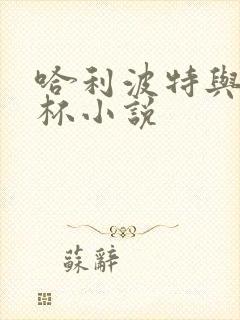 哈利波特與
杯小說
蘇辭